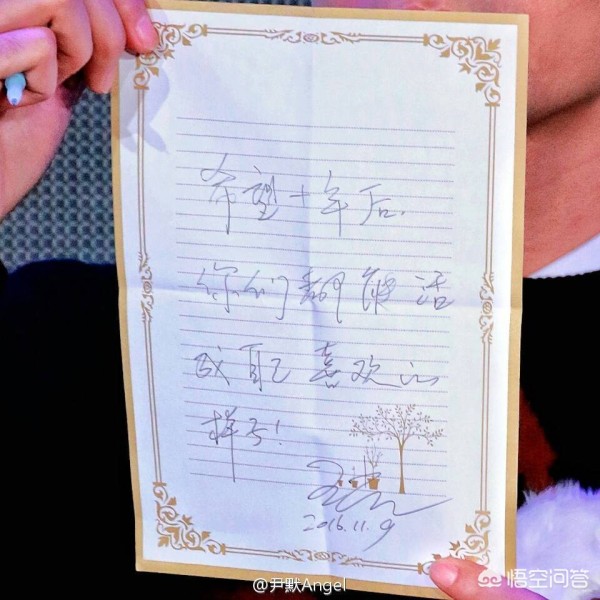 希望十年后.
你们都能活
成自己喜欢的
样子!
2016.11.9
@尹默Angel
悟空问答